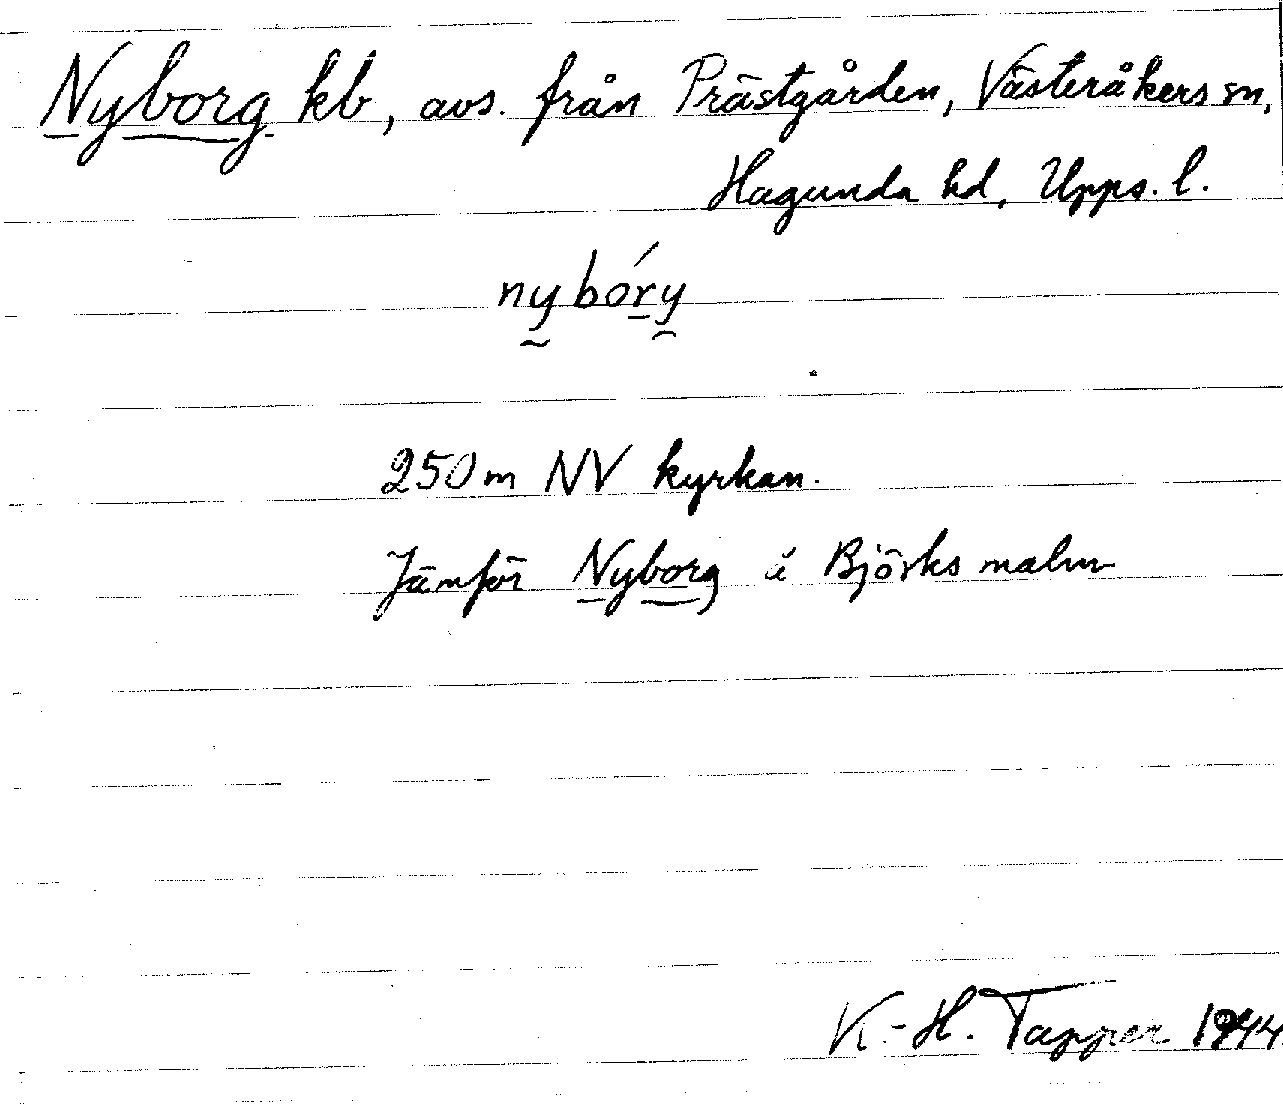 Nyborg kb, avs. från Prästgården, Västeråkers sn,
Hagunda hd, Upps. l.
nybóry
250 m NV kyrkan.
Jämför Nyborg å Björks malm
K.-H. Tapper 1944